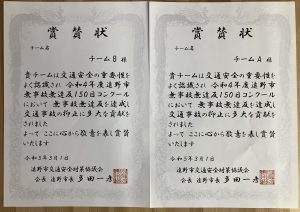 賞賛状
チーム名
チームB 様
貴チームは交通安全の重要性を
よく認識され 令和4年度遠野市
無事故無違反150日コンクール
において 無事故無違反を達成し
交通事故の抑止に多大な貢献を
されました
よって ここに心から敬意を表し賞賛
いたします
令和5年3月1日
遠野市交通安全対策協議会
会長 遠野市長 多田一彦
賞賛状
チーム名
チームA 様
貴チームは交通安全の重要性を
よく認識され 令和4年度遠野市
無事故無違反150日コンクール
において 無事故無違反を達成し
交通事故の抑止に多大な貢献を
されました
よって ここに心から敬意を表し賞賛
いたします
令和5年3月1日
遠野市交通安全対策協議会
会長 遠野市長 多田一彦